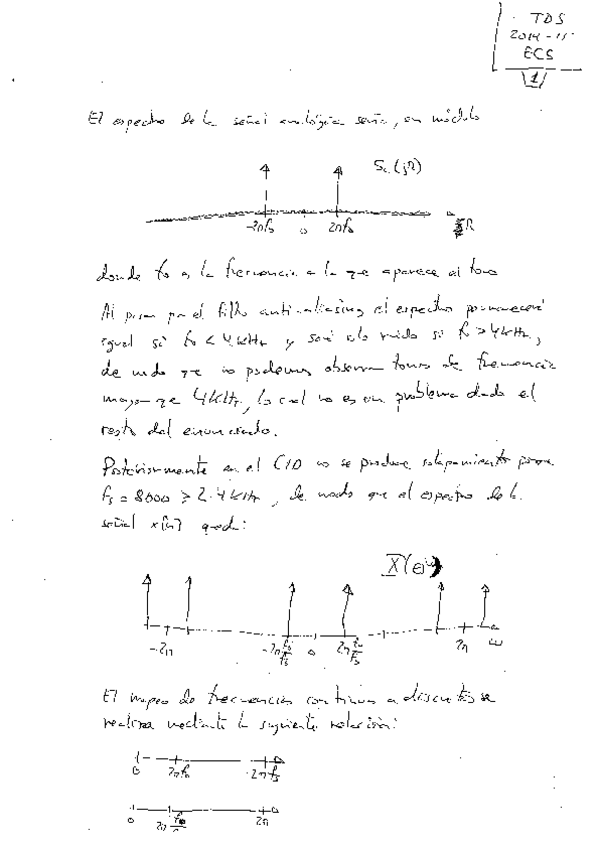 TDS
2014-15
ECS
1
El espectro de la señal analógica sería, en módulo
Sc(jΩ)
-2πf₀ 0 2πf₀ Ω
donde f₀ es la frecuencia a la que aparece el tono
Al pasar por el filtro anti-aliasing el espectro permanecerá
igual si f₀ < 4kHz y será solo ruido si f₀ > 4kHz,
de modo que no podemos observar tonos de frecuencia
mayor que 4kHz, lo cual no es un problema dado el
resto del enunciado.
Posteriormente en el C/D no se produce solapamiento porque
fs = 8000 ≥ 2·4kHz, de modo que el espectro de la
señal x[n] queda:
X(e^jω)
-2π -2π f₀/fs 0 2π f₀/fs 2π ω
El mapeo de frecuencias continuas a discretas se
realiza mediante la siguiente relación:
0 2πf₀ 2πfs
0 2π f₀ 2π